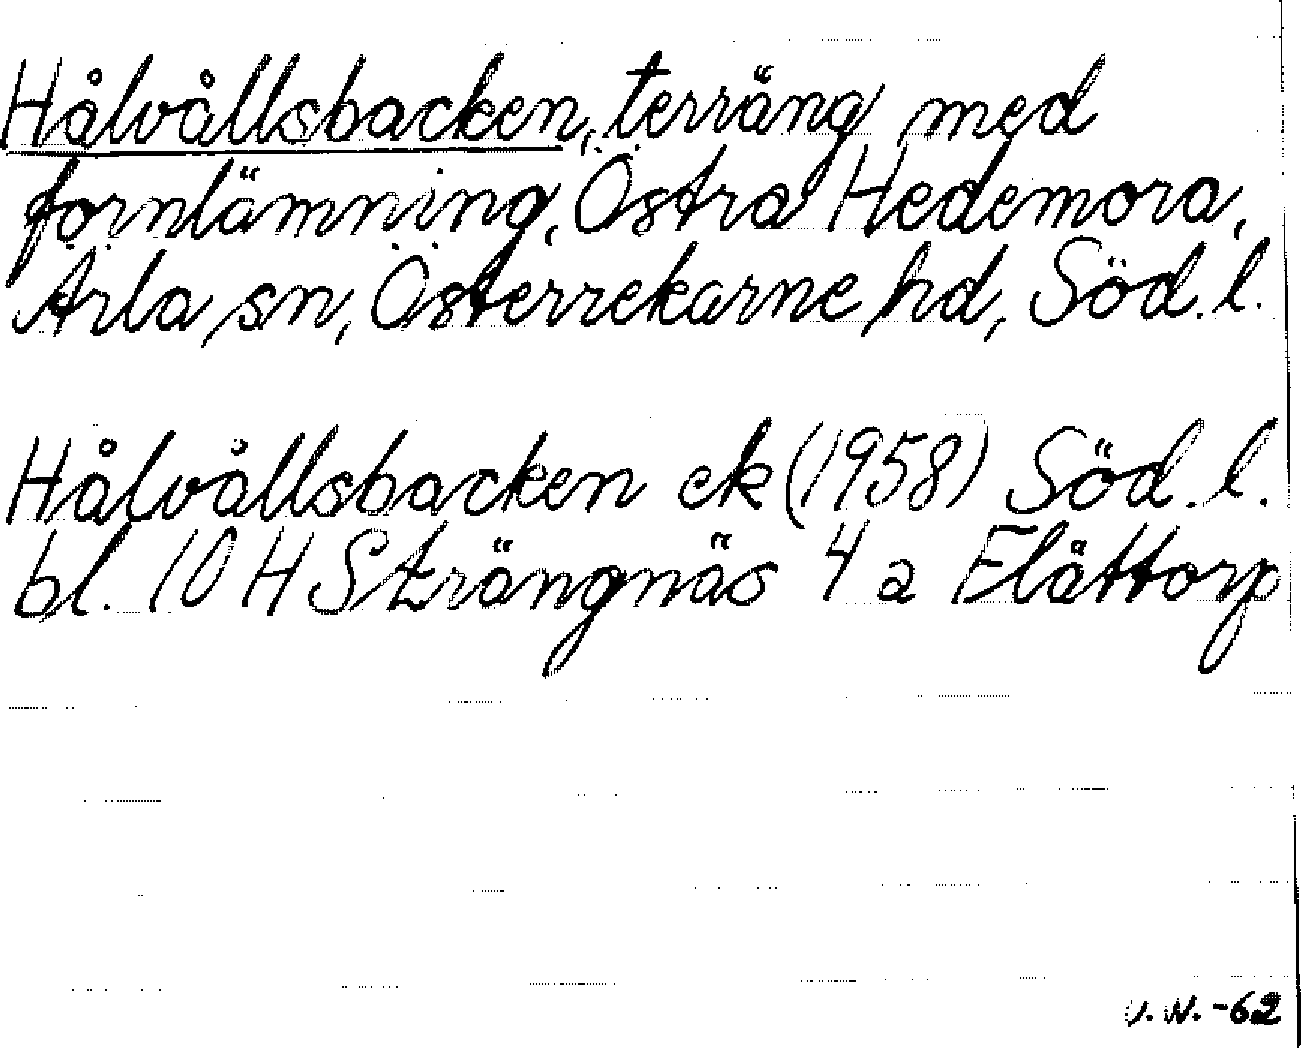 Hålvållsbacken, terräng med
fornlämning, Östra Hedemora,
Ärla sn, Österrekarne hd, Söd. l.
Hålvållsbacken ek (1958) Söd. l.
bl. 10 H Strängnäs 4 a Flättorp
V. W. -62